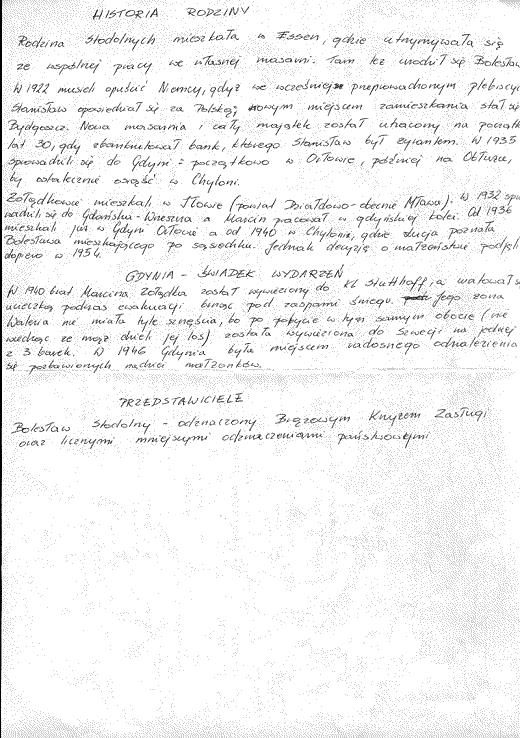 HISTORIA RODZINY
Rodzina Stodolnych mieszkała w Essen, gdzie utrzymywała się
ze wspólnej pracy we własnej masarni. Tam też urodził się Bolesław
W 1922 musieli opuścić Niemcy, gdyż we wcześniej przeprowadzonym plebiscyc
Stanisław opowiedział się za Polską; nowym miejscem zamieszkania stał się
Bydgoszcz. Nowa masarnia i cały majątek został utracony na począt
lat 30, gdy zbankrutował bank, którego Stanisław był żyrantem. W 1935
sprowadzili się do Gdyni: początkowo w Orłowie, później na Obłuże,
by ostatecznie osiąść w Chyloni.
Żołądkowie mieszkali w Iłowie (powiat Działdowo-obecnie Mława). W 1932 spro
wadzili się do Gdańska-Wrzeszcza a Marcin pracował w gdyńskiej kolei. Od 1936
mieszkali już w Gdyni Orłowie a od 1940 w Chyloni, gdzie Łucja poznała
Bolesława mieszkającego po sąsiedzku. Jednak decyzję o małżeństwie podjęli
dopiero w 1954.
GDYNIA - ŚWIADEK WYDARZEŃ
W 1940 brat Marcina Żołądka został wywieziony do KL Stutthoff, a uratował s
ucieczką podczas ewakuacji brnąc pod zaspami śniegu. Jego żona
Waleria nie miała tyle szczęścia, bo po pobycie w tym samym obozie (nie
wiedząc że mąż dzieli jej los) została wywieziona do Szwecji na jednej
z 3 barek. W 1946 Gdynia była miejscem radosnego odnalezienia
się pozbawionych nadziei małżonków.
PRZEDSTAWICIELE
Bolesław Stodolny - odznaczony Brązowym Krzyżem Zasługi
oraz licznymi mniejszymi odznaczeniami państwowymi